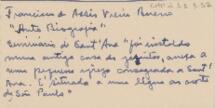 Francisco de Assis Vieira Bueno
"Auto Biografia"
Seminario de Sant'Ana "foi instalado
numa antiga casa de jesuitas, anexa a
uma pequena igreja consagrada a Sant'
Ana e situada a uma légua ao norte
de São Paulo"